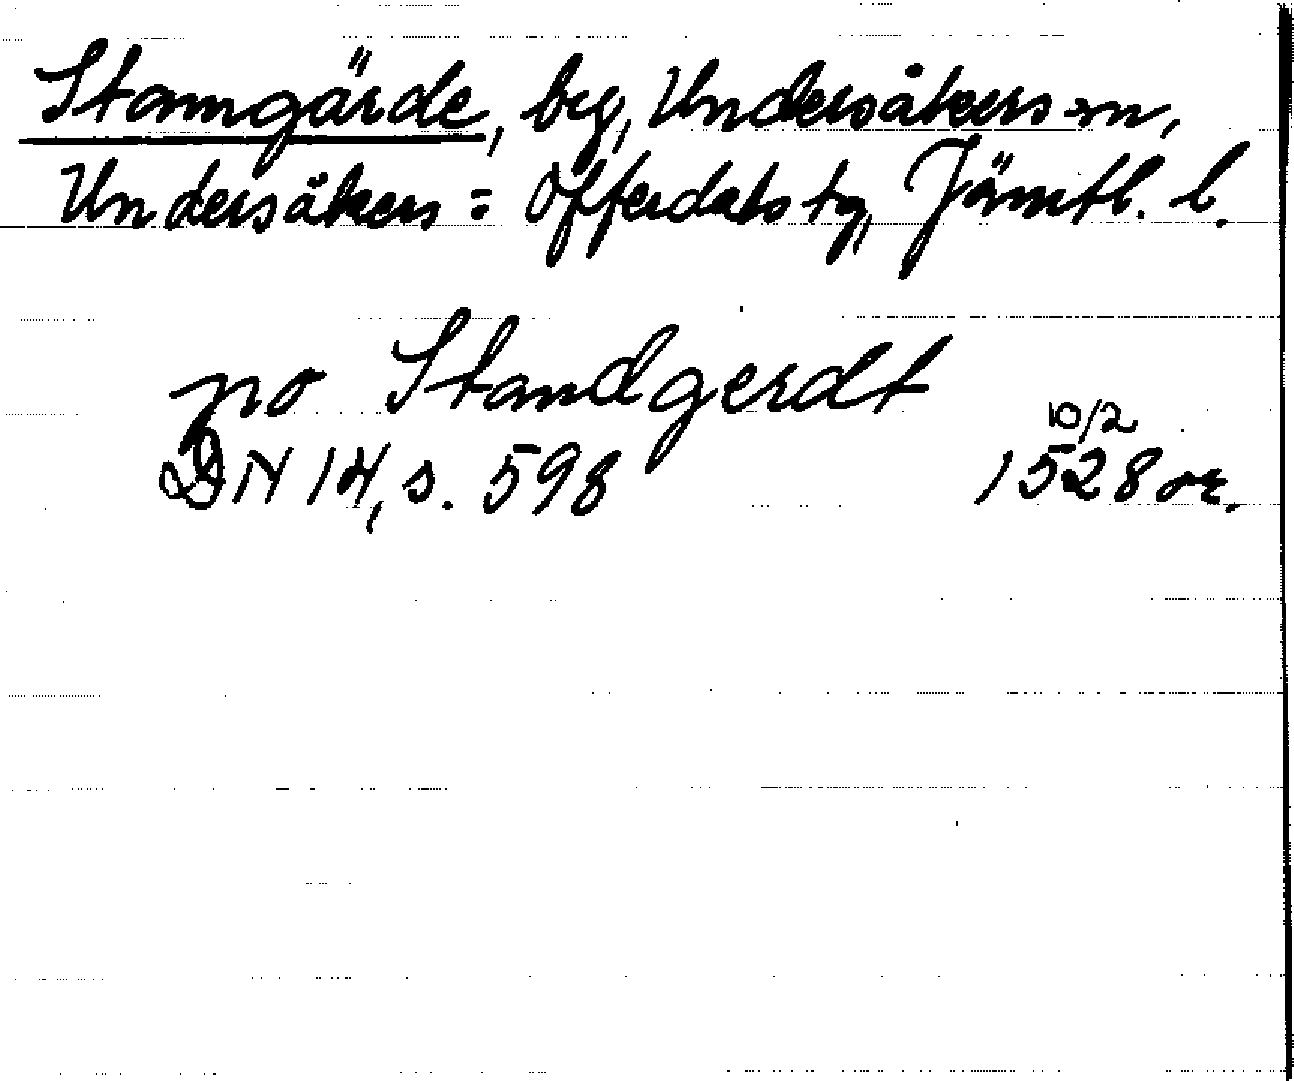 Stamgärde, by, Undersåkers sn,
Undersåkers = Offerdals tg, Jämtl. l.
po Standgerdt
10/2
DN 14, s. 598 1528 or.